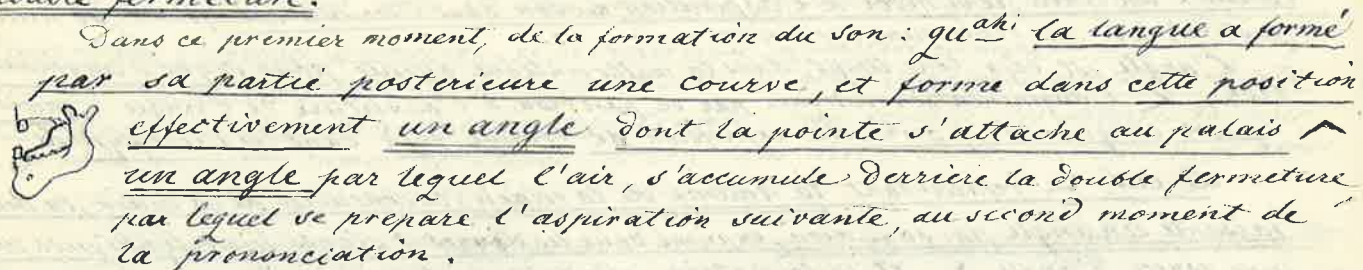 double fermeture.
Dans ce premier moment, de la formation du son: quahi la langue a formé
par sa partie posterieure une courve, et forme dans cette position
effectivement un angle dont la pointe s'attache au palais ^
un angle par lequel l'air, s'accumule derriere la double fermeture
par lequel se prepare l'aspiration suivante, au second moment de
la prononciation.